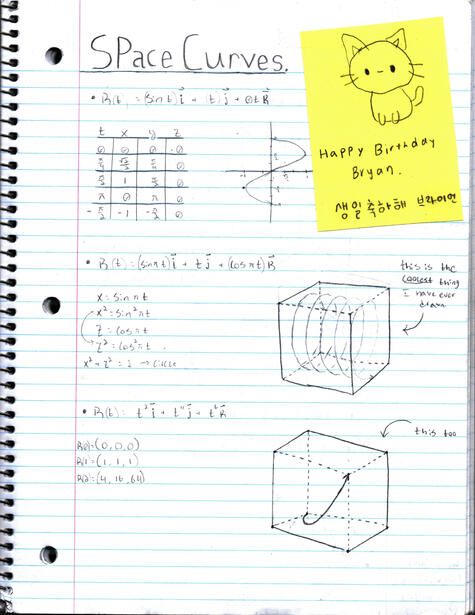 SPace Curves.
• R(t) = (sin t)i + (t)j + 0tk
t x y z
0 0 0 0
π 0 π 0
-π/2 -1 -π/2 0
Happy Birthday
Bryan.
생일 축하해 브라이언
• R(t) = (sin πt)i + tj + (cos πt)k
x = sin πt
x² = sin² πt
z = cos πt
z² = cos² πt
x² + z² = 1 → circle
this is the
coolest thing
I have ever
drawn
R(0) = (0,0,0)
R(1) = (1,1,1)
R(2) = (4,16,64)
this too